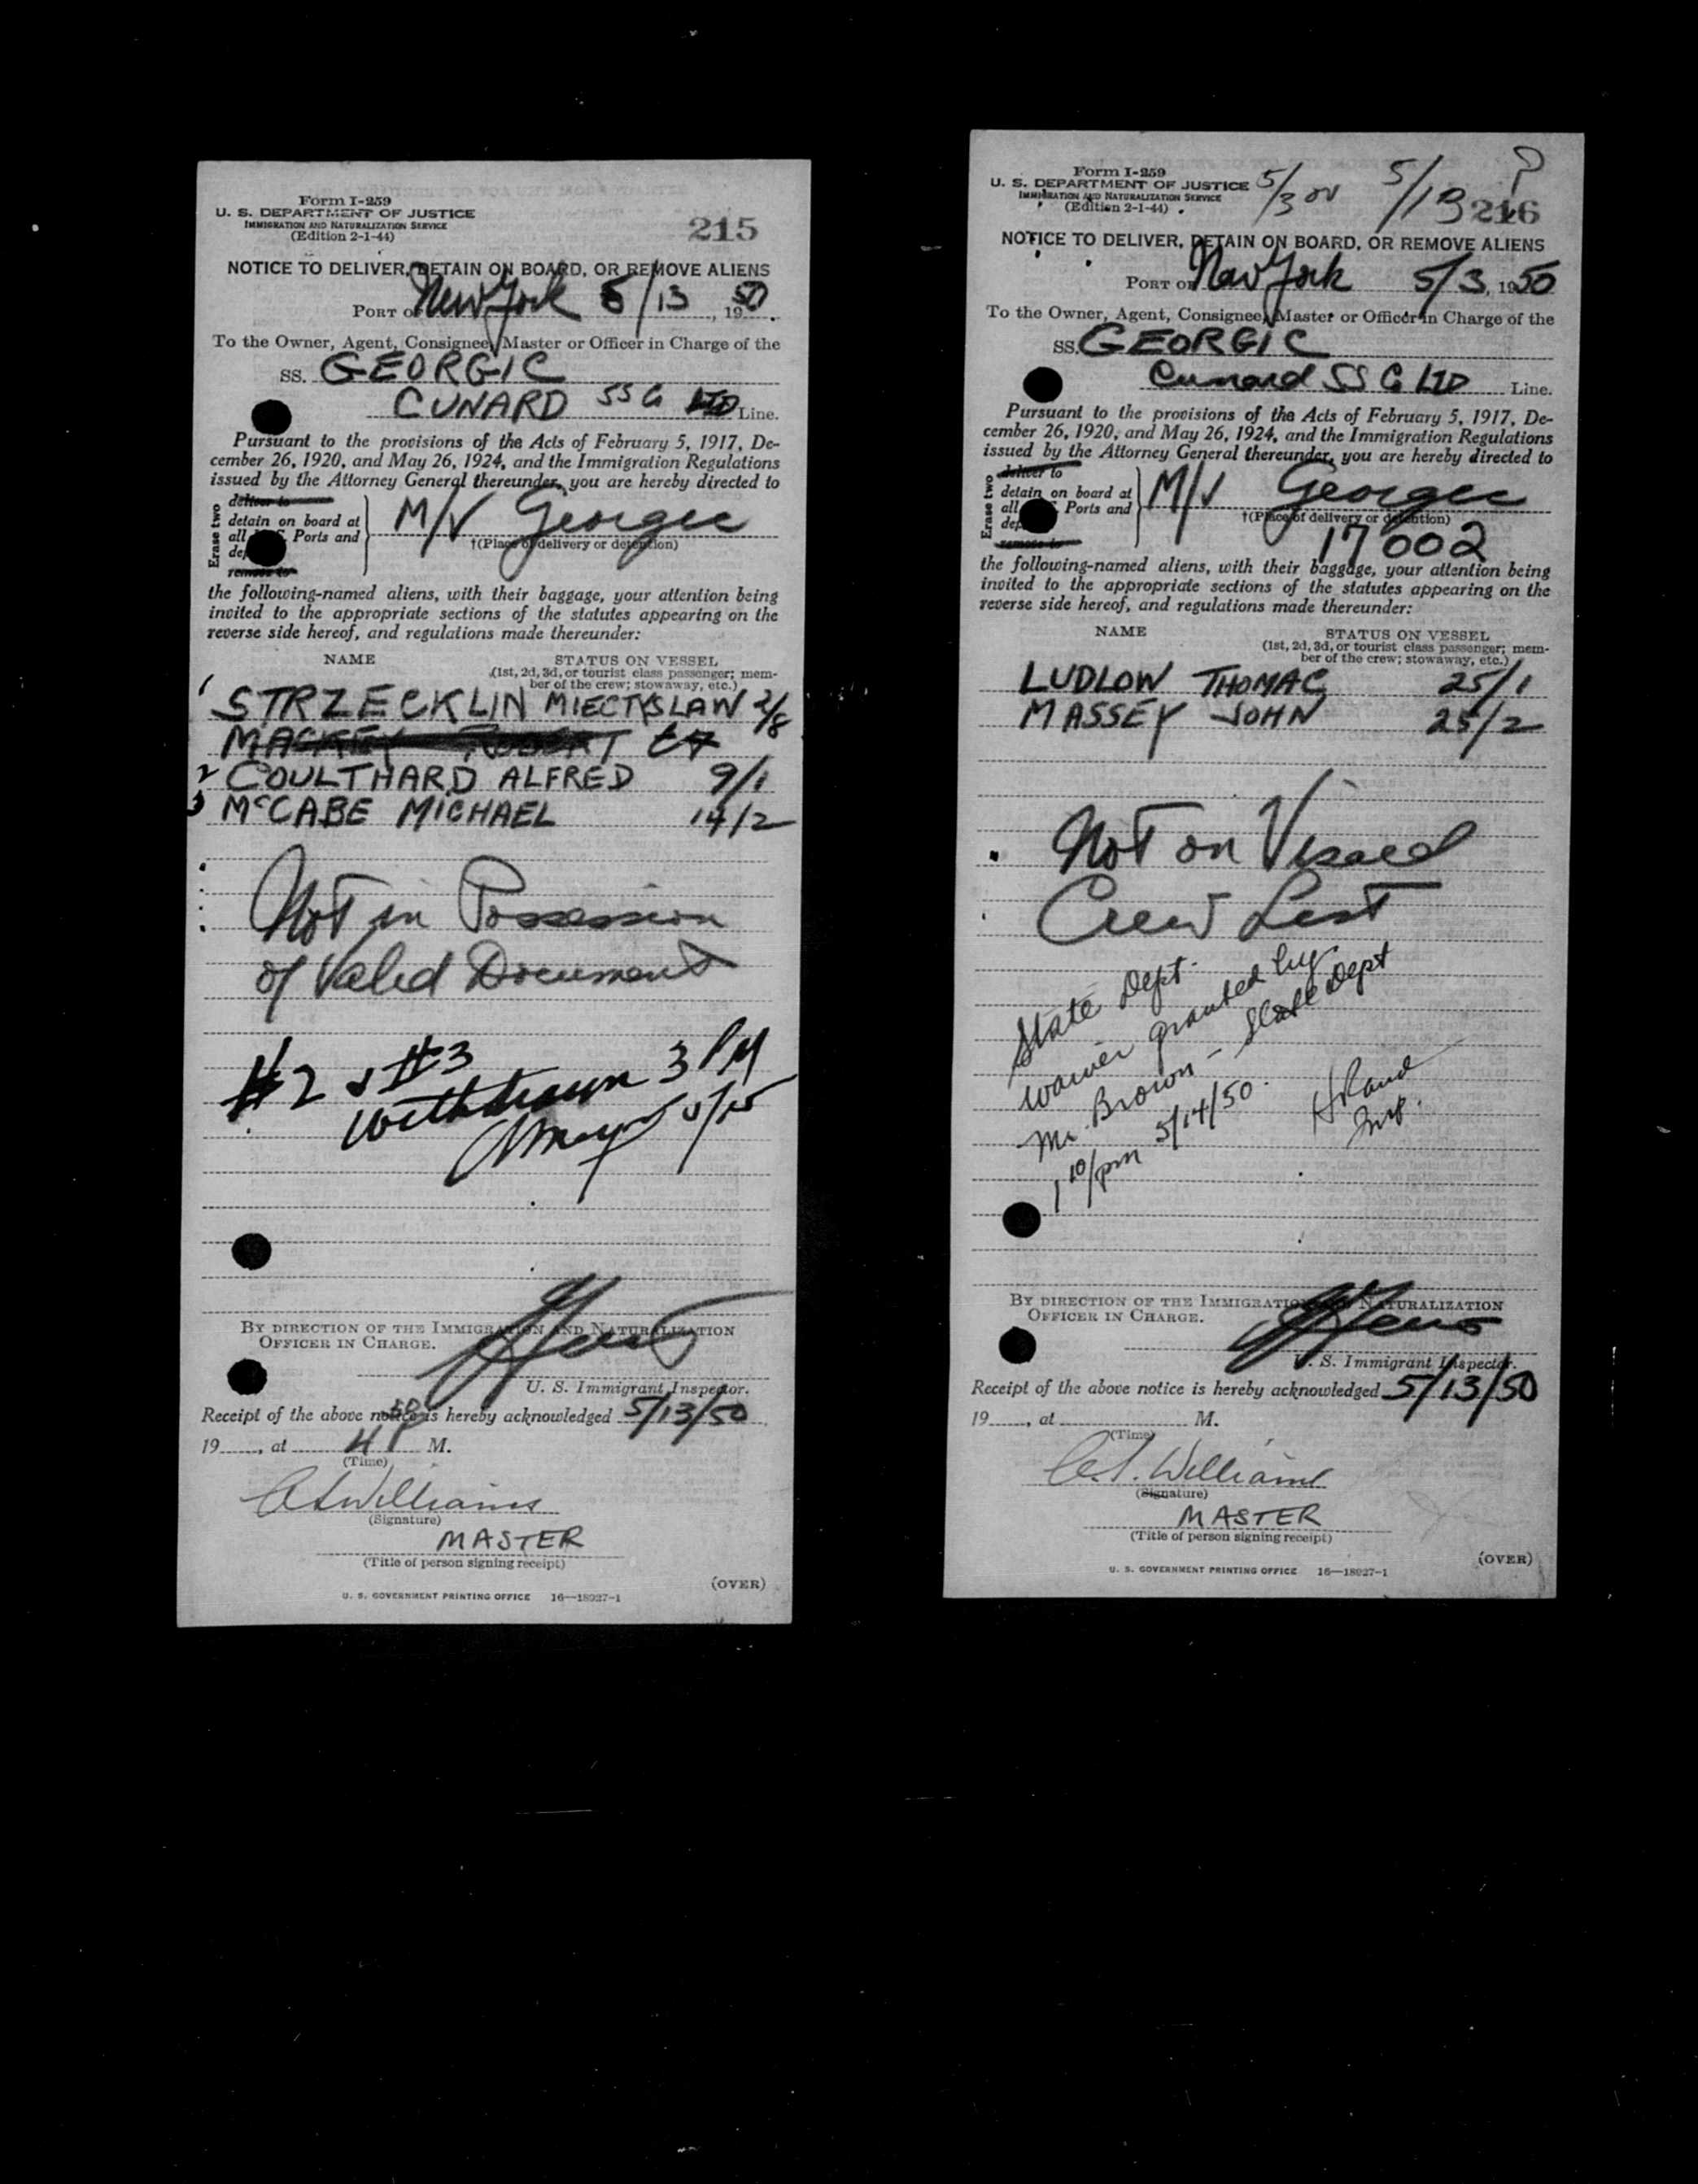 Form I-259
U. S. DEPARTMENT OF JUSTICE
IMMIGRATION AND NATURALIZATION SERVICE
(Edition 2-1-44)
215
NOTICE TO DELIVER, DETAIN ON BOARD, OR REMOVE ALIENS
PORT OF New York 5/13, 1950.
To the Owner, Agent, Consignee, Master or Officer in Charge of the
SS. GEORGIC
CUNARD SS Co LTD Line.
Pursuant to the provisions of the Acts of February 5, 1917, De-
cember 26, 1920, and May 26, 1924, and the Immigration Regulations
issued by the Attorney General thereunder, you are hereby directed to
Erase two
deliver to
detain on board at
all Ports and
M/V Georgic
†(Place of delivery or detention)
remove to
the following-named aliens, with their baggage, your attention being
invited to the appropriate sections of the statutes appearing on the
reverse side hereof, and regulations made thereunder:
NAME STATUS ON VESSEL
(1st, 2d, 3d, or tourist class passenger; mem-
ber of the crew; stowaway, etc.)
1 STRZECKLIN MIECTYSLAW 2/8
MACKEY ROBERT
2 COULTHARD ALFRED 9/1
3 McCABE MICHAEL 14/2
Not in Possession
of Valid Document
#2 & #3
Withdrawn 3 PM
5/15
BY DIRECTION OF THE IMMIGRATION AND NATURALIZATION
OFFICER IN CHARGE.
U. S. Immigrant Inspector.
Receipt of the above notice is hereby acknowledged 5/13/50,
19____, at 4 P M.
(Time)
A Williams
(Signature)
MASTER
(Title of person signing receipt)
(OVER)
U. S. GOVERNMENT PRINTING OFFICE 16—18027-1
Form I-259
U. S. DEPARTMENT OF JUSTICE
IMMIGRATION AND NATURALIZATION SERVICE
(Edition 2-1-44)
5/3 or 5/13 ?
216
NOTICE TO DELIVER, DETAIN ON BOARD, OR REMOVE ALIENS
PORT OF New York 5/3, 1950
To the Owner, Agent, Consignee, Master or Officer in Charge of the
SS. GEORGIC
Cunard SS Co LTD Line.
Pursuant to the provisions of the Acts of February 5, 1917, De-
cember 26, 1920, and May 26, 1924, and the Immigration Regulations
issued by the Attorney General thereunder, you are hereby directed to
Erase two
deliver to
detain on board at
all Ports and
M/V Georgic
†(Place of delivery or detention)
remove to
17002
the following-named aliens, with their baggage, your attention being
invited to the appropriate sections of the statutes appearing on the
reverse side hereof, and regulations made thereunder:
NAME STATUS ON VESSEL
(1st, 2d, 3d, or tourist class passenger; mem-
ber of the crew; stowaway, etc.)
LUDLOW THOMAS 25/1
MASSEY JOHN 25/2
Not on Visaed
Crew List
State Dept.
waiver granted by
Mr. Brown - State Dept
1 10/pm 5/14/50.
Insp.
BY DIRECTION OF THE IMMIGRATION AND NATURALIZATION
OFFICER IN CHARGE.
U. S. Immigrant Inspector.
Receipt of the above notice is hereby acknowledged 5/13/50
19____, at ____ M.
(Time)
Williams
(Signature)
MASTER
(Title of person signing receipt)
(OVER)
U. S. GOVERNMENT PRINTING OFFICE 16—18027-1